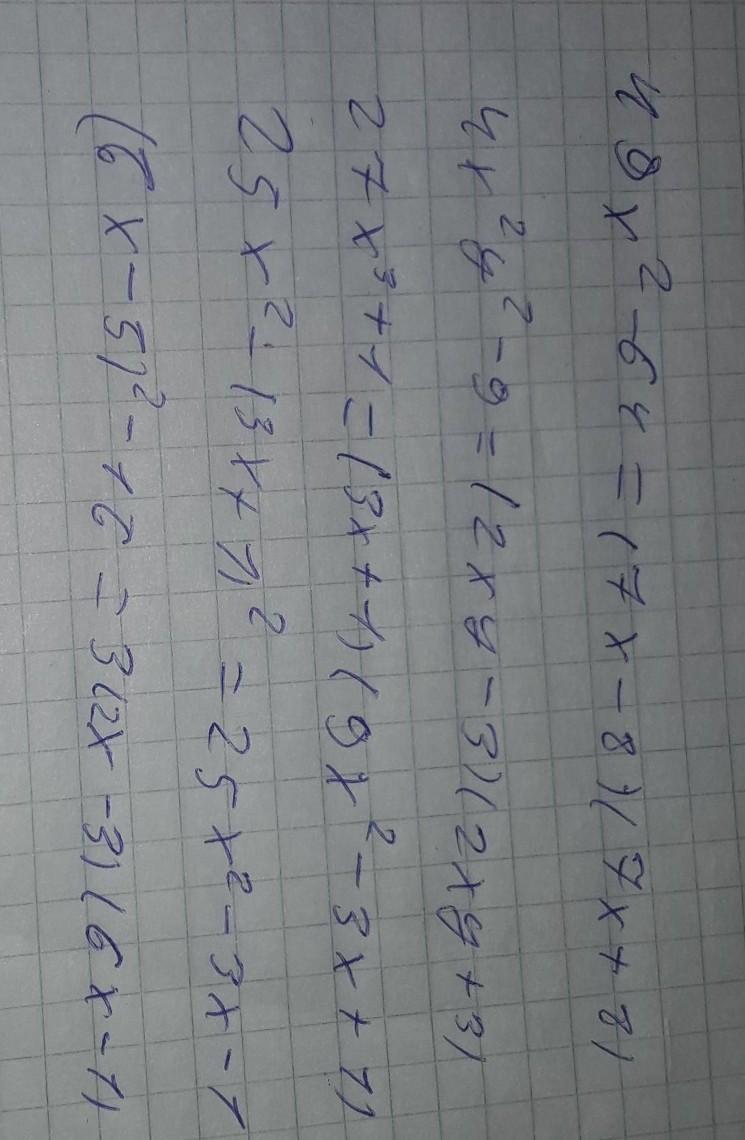 49x²-64=(7x-8)(7x+8)
4x²y²-9=(2xy-3)(2xy+3)
27x³+1=(3x+1)(9x²-3x+1)
25x²-(3x+1)²=25x²-3x-1
(6x-5)²-16=3(2x-3)(6x-1)